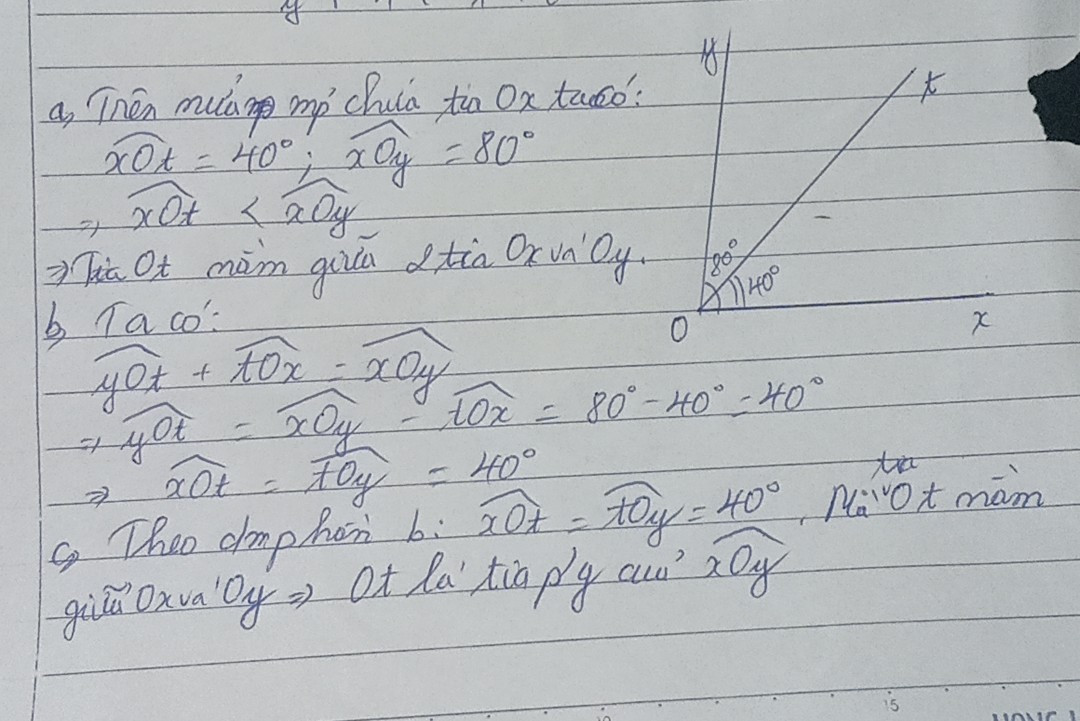 a, Trên nửa mp chứa tia Ox ta có:
xOt = 40°; xOy = 80°
=> xOt < xOy
=> Tia Ot nằm giữa 2 tia Ox và Oy.
b, Ta có:
yOt + tOx = xOy
=> yOt = xOy - tOx = 80° - 40° = 40°
=> xOt = tOy = 40°
c, Theo cm phần b: xOt = tOy = 40°, Mà tia Ot nằm
giữa Ox và Oy => Ot là tia p'g của xOy
y
t
80°
40°
O
x
15